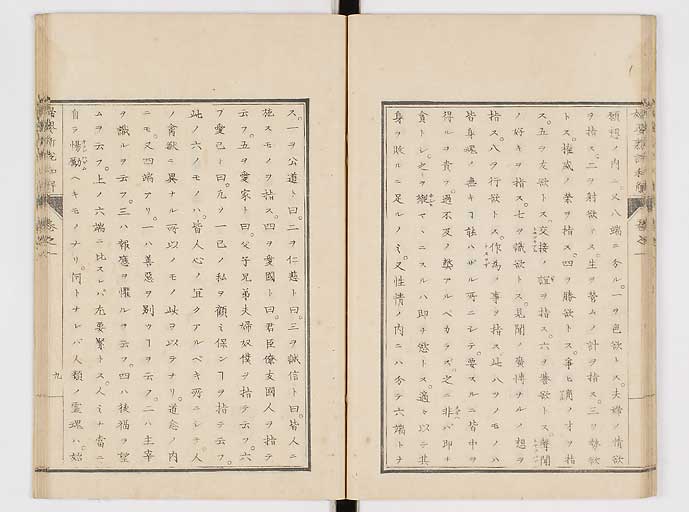 類想ノ内ニ又八端ニ分ル。一ヲ色欲トス。夫婦ノ情欲
ヲ指ス。二ヲ財欲トス。生ヲ営ムノ計ヲ指ス。三ヲ勢欲
トス。権威ノ榮ヲ指ス。四ヲ勝欲トス。爭ヒ ノオヲ指
ス。五ヲ友欲トス。交接ノ誼ヲ指ス。六ヲ譽欲トス。 聞
ノ好キヲ指ス。七ヲ識欲トス。見聞ノ廣博ナルノ想ヲ
指ス。八ヲ行欲トス。作為ノ事ヲ指ス。此八ツノモノハ
皆身魂ノ無キヿ能ハザル所ニシテ。要スルニ皆中ヲ
得ルヲ貴ブ。過不及ノ弊アルベカラズ。之ニ非ハ即チ
貪トシ。之ヲ縦マヽニスルハ即チ慾トス。適 以テ其
身ヲ敗ルニ足ルノミ。又性情ノ内ニハ分テ六端トナ
ス。一ヲ公道ト曰。二ヲ仁慈ト曰。三ヲ誠信ト曰。皆人ニ
施スモノヲ指ス。四ヲ愛國ト曰。君臣僚友國人ヲ指テ
云フ。五ヲ愛家ト曰。父子兄弟夫婦奴僕ヲ指テ云フ。六
ヲ愛己ト曰。凡ソ一己ノ私ヲ顧ミ保ンヿヲ指テ云フ。
此ノ六ノモノハ。皆人心ノ宜クアルベキ所ニシテ。人
ノ禽獣ニ異ナル所以ノモノ此ヲ以テナリ。道念ノ内
ニモ。又四端アリ。一ハ善惡ヲ別ツヿヲ云フ。二ハ主宰
ヲ識ルヲ云フ。三ハ報應ヲ懼ルヲ云フ。四ハ後福ヲ望
ムヲ云フ。上ノ六端ニ比スレバ。尤要緊トス。人ミナ當ニ
自ラ惕勵ヘキモノナリ。何トナレバ人類ノ靈魂ハ。始
九